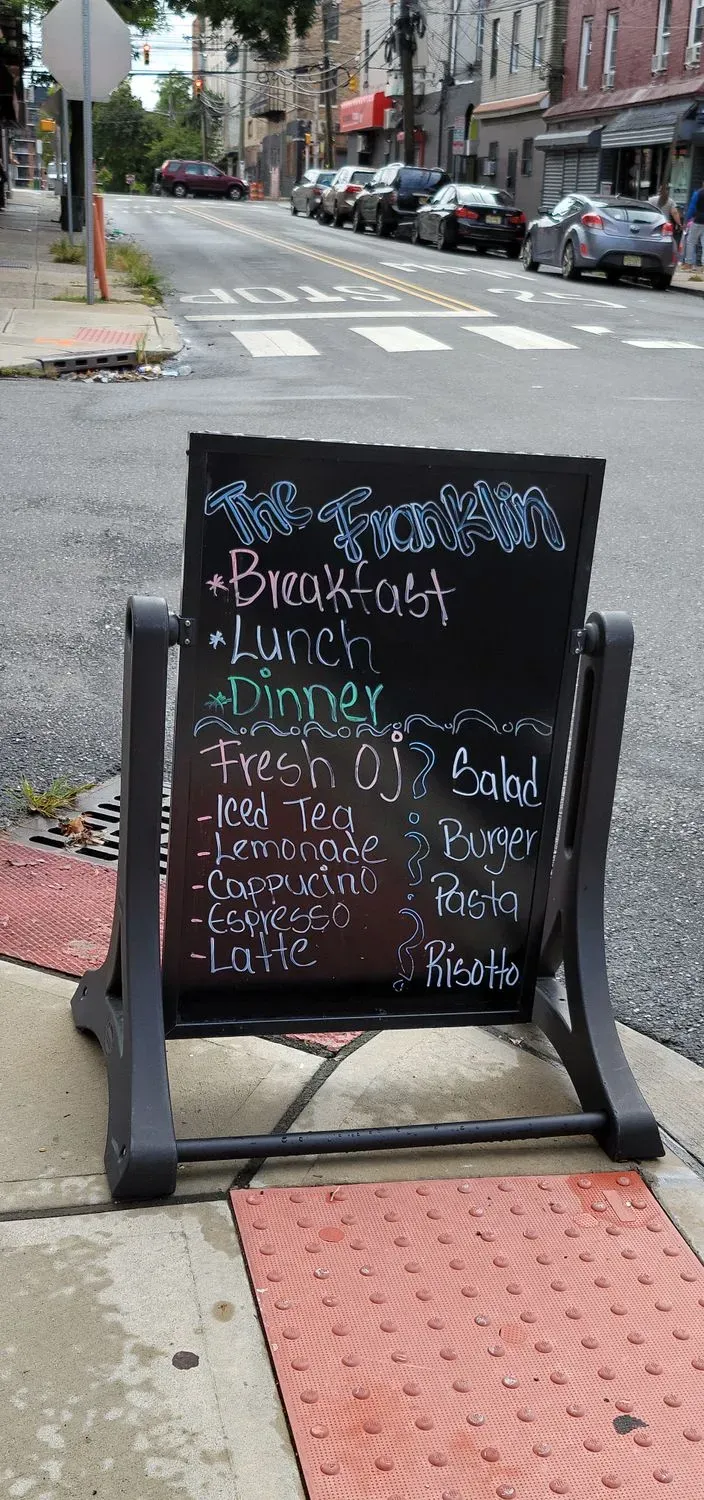 STOP
25
The Franklin
*Breakfast
*Lunch
*Dinner
Fresh Oj
- Iced Tea
- Lemonade
- Cappucino
- Espresso
- Latte
Salad
Burger
Pasta
Risotto